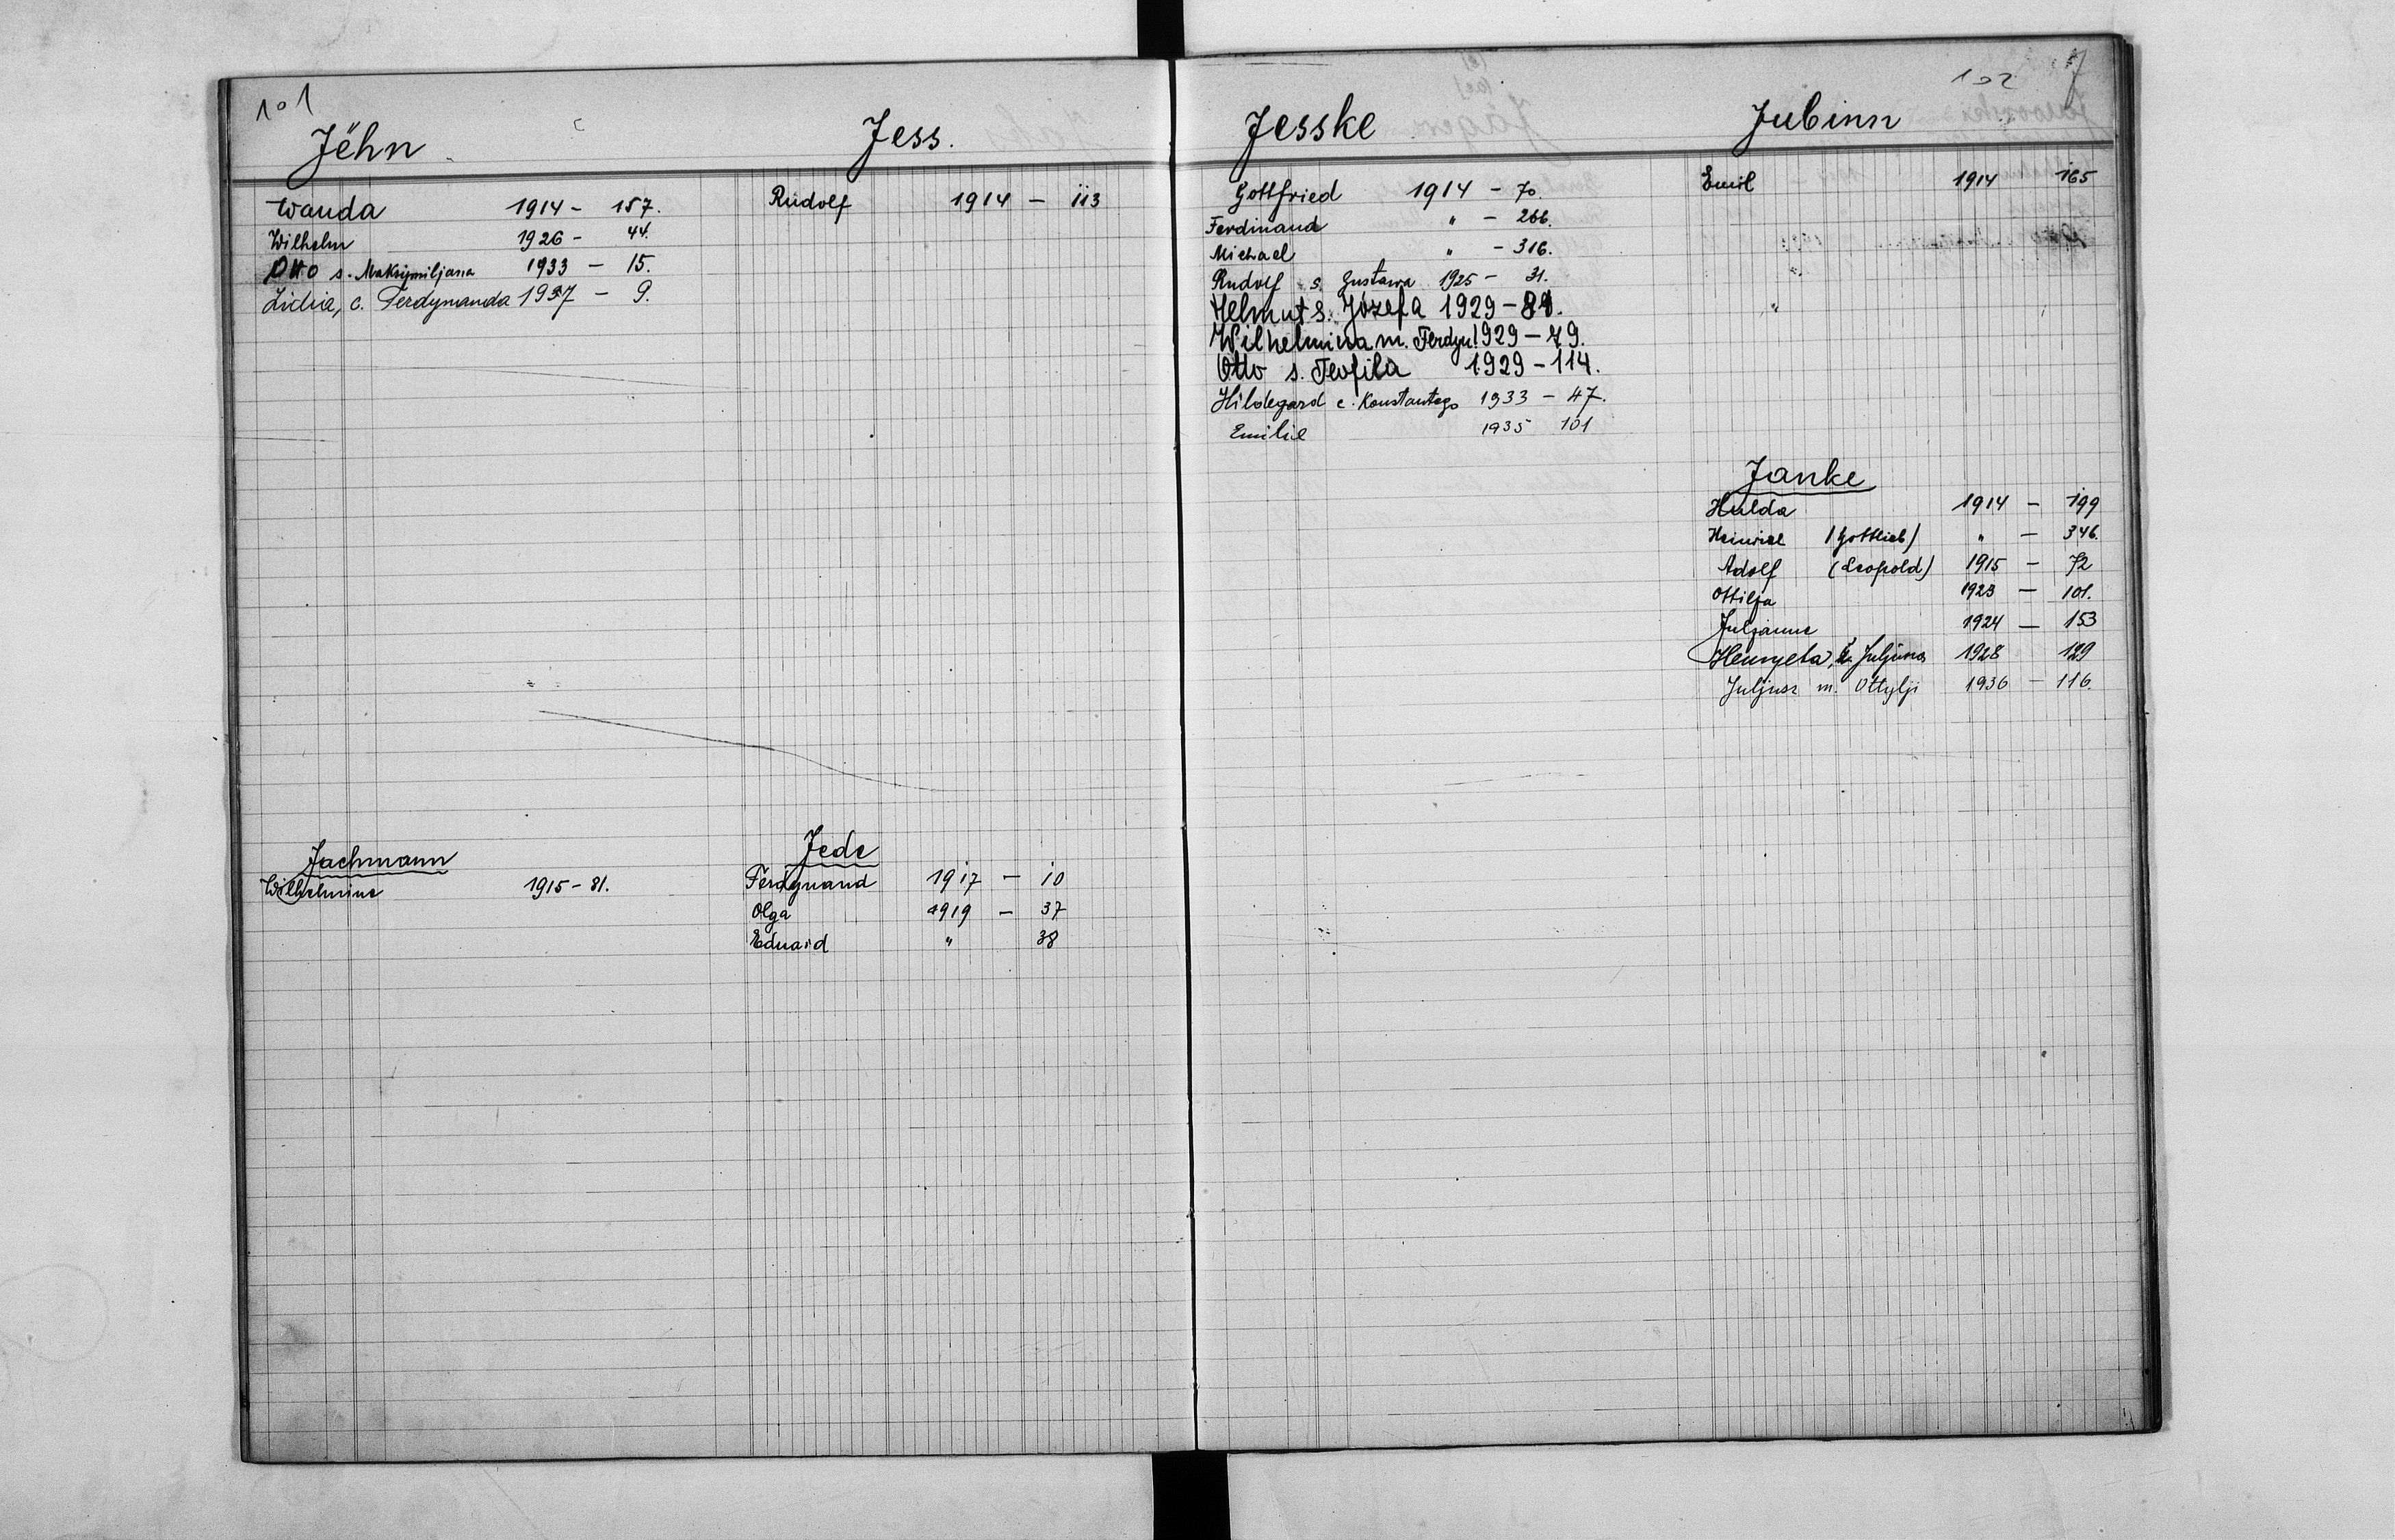 101
Jëhn
Wanda 1914 - 157.
Wilhelm 1926 - 44.
Otto s. Maksymiljana 1933 - 15.
Lidia, c. Ferdynanda 1937 - 9.
Jachmann
Wilhelmine 1915 - 81.
Jess.
Rudolf 1914 - 113
Jede
Ferdynand 1917 - 10
Olga 1919 - 37
Eduard " 38
102
Jesske
Gottfried 1914 - 70.
Ferdinand " - 266.
Michael " - 316.
Rudolf s. Gustawa 1925 - 31.
Helmut s. Józefa 1929 -
Wilhelmina m. Ferdyn 1929 - 79.
Otto s. Teofila 1929 - 114.
Hildegard c. Konstantego 1933 - 47.
Emilie 1935 101
Jubinn
Emil 1914 165
Janke
Hulda 1914 - 199
Heinrich (Gottlieb) " - 346.
Adolf (Leopold) 1915 - 72
Ottilja 1923 - 101.
Juljanne 1924 - 153
Henryeta, Juljusza 1928 129
Juljusz m. Ottylji 1936 - 116.